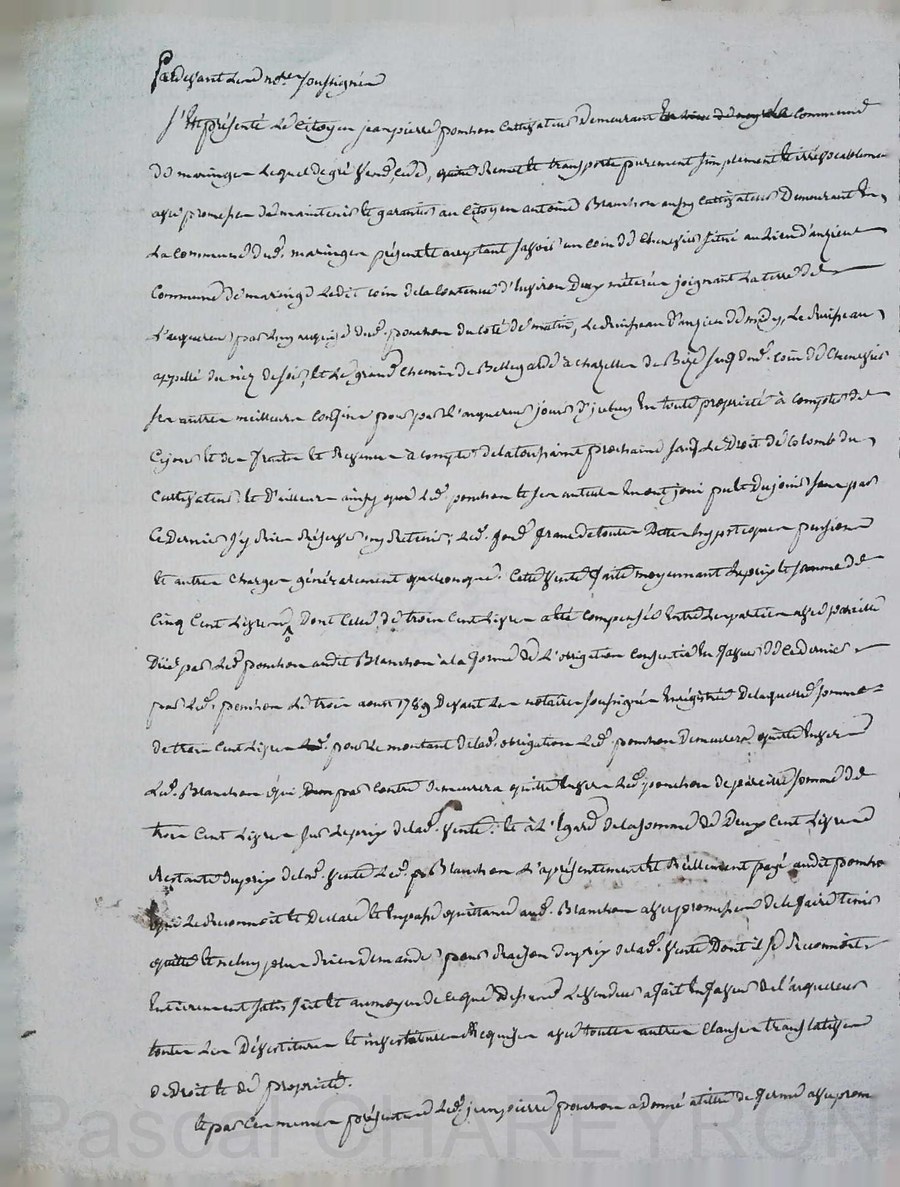 Pardevant les nores soussignés
s'est présenté le citoyen jean pierre ponchon cultivateur demeurant commune
de maringes lequel de gré vend, cede, quitte remet et transporte purement simplement et irrévocablement
avec promesse de maintenir et garantir au citoyen antoine Blanchon aussy cultivateur demeurant en
la commune dud. maringes présent et acceptant savoir un coin de chenevier situé au lieu d'anzieux
commune de maringe ledit coin de la contenue d'environ deux méterée joignant la terre de
l'acquereur par luy acquise dud. ponchon du coté de matin, le Ruisseau d'anzieu de midy, le Ruisseau
appellé du de soir, et le grand chemin de Bellegarde à chazelles de Bize sauf dud. coin de chenevier
ses autres meilleurs confins pour par l'acquereur jouir d'jceluy en toute propriété à compter de
ce jour et des fruits et Revenus à compter de la toussaint prochaine sauf le droit de colomb du
cultivateur et d'ailleurs ainsy que led. ponchon et ses auteurs en ont joui pu et du jouir sans par
ce dernier s'y rien réserver ny retenir; led. fond franc de toutes dettes hypotecques pensions
et autres charges généralement quelconques. Cette vente faite moyennant le prix et somme de
Cinq Cent Livres, dont celle de trois cent livres a été compensée entre les parties avec pareille
düe par led. ponchon audit Blanchon à la forme de l'obligation consentie en faveur de ce dernier
par led. ponchon le trois aout 1789 devant les notaires soussignés Enrégistrée de laquelle somme
de trois cent livres pour le montant de lad. obligation led. ponchon demeurera quitte envers
led. Blanchon qui par contre demeurera quitte envers led. ponchon de pareille somme de
trois cent livres sur le prix de lad. vente; et à l'égard de la somme de Deux Cent Livres
restante du prix de lad. vente led. Blanchon l'a présentement et réellement payé audit ponchon
qui le reconnoit et declare et en passe quittance aud. Blanchon avec promesse de le faire tenir
quitte et ne luy plus rien demander pour raison du prix de lad. vente dont il se reconnoit
entierement satisfait et au moyen de ce que dessus le vendeur a fait en faveur de l'acquereur
toutes les dévestitures et investitures Requises avec toutes autres clauses translatives
de droit et de propriété.
et par ces memes présentes led. jean pierre ponchon a donné à titre de ferme avec prom
Pascal CHAREYRON